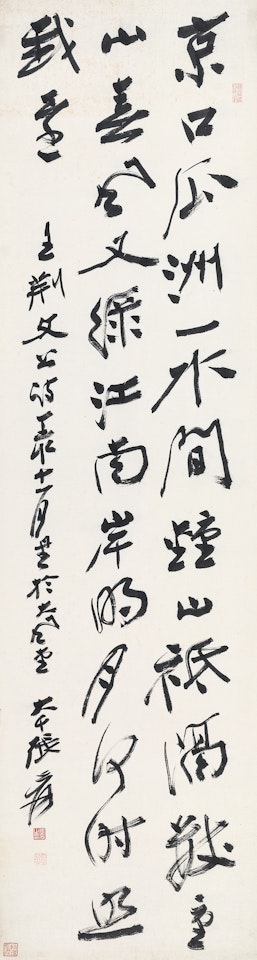 京口瓜洲一水間鍾山祗隔數重
山春風又綠江南岸明月何時照
我還
王荆文公詩十一月書於大風堂 大千張爰